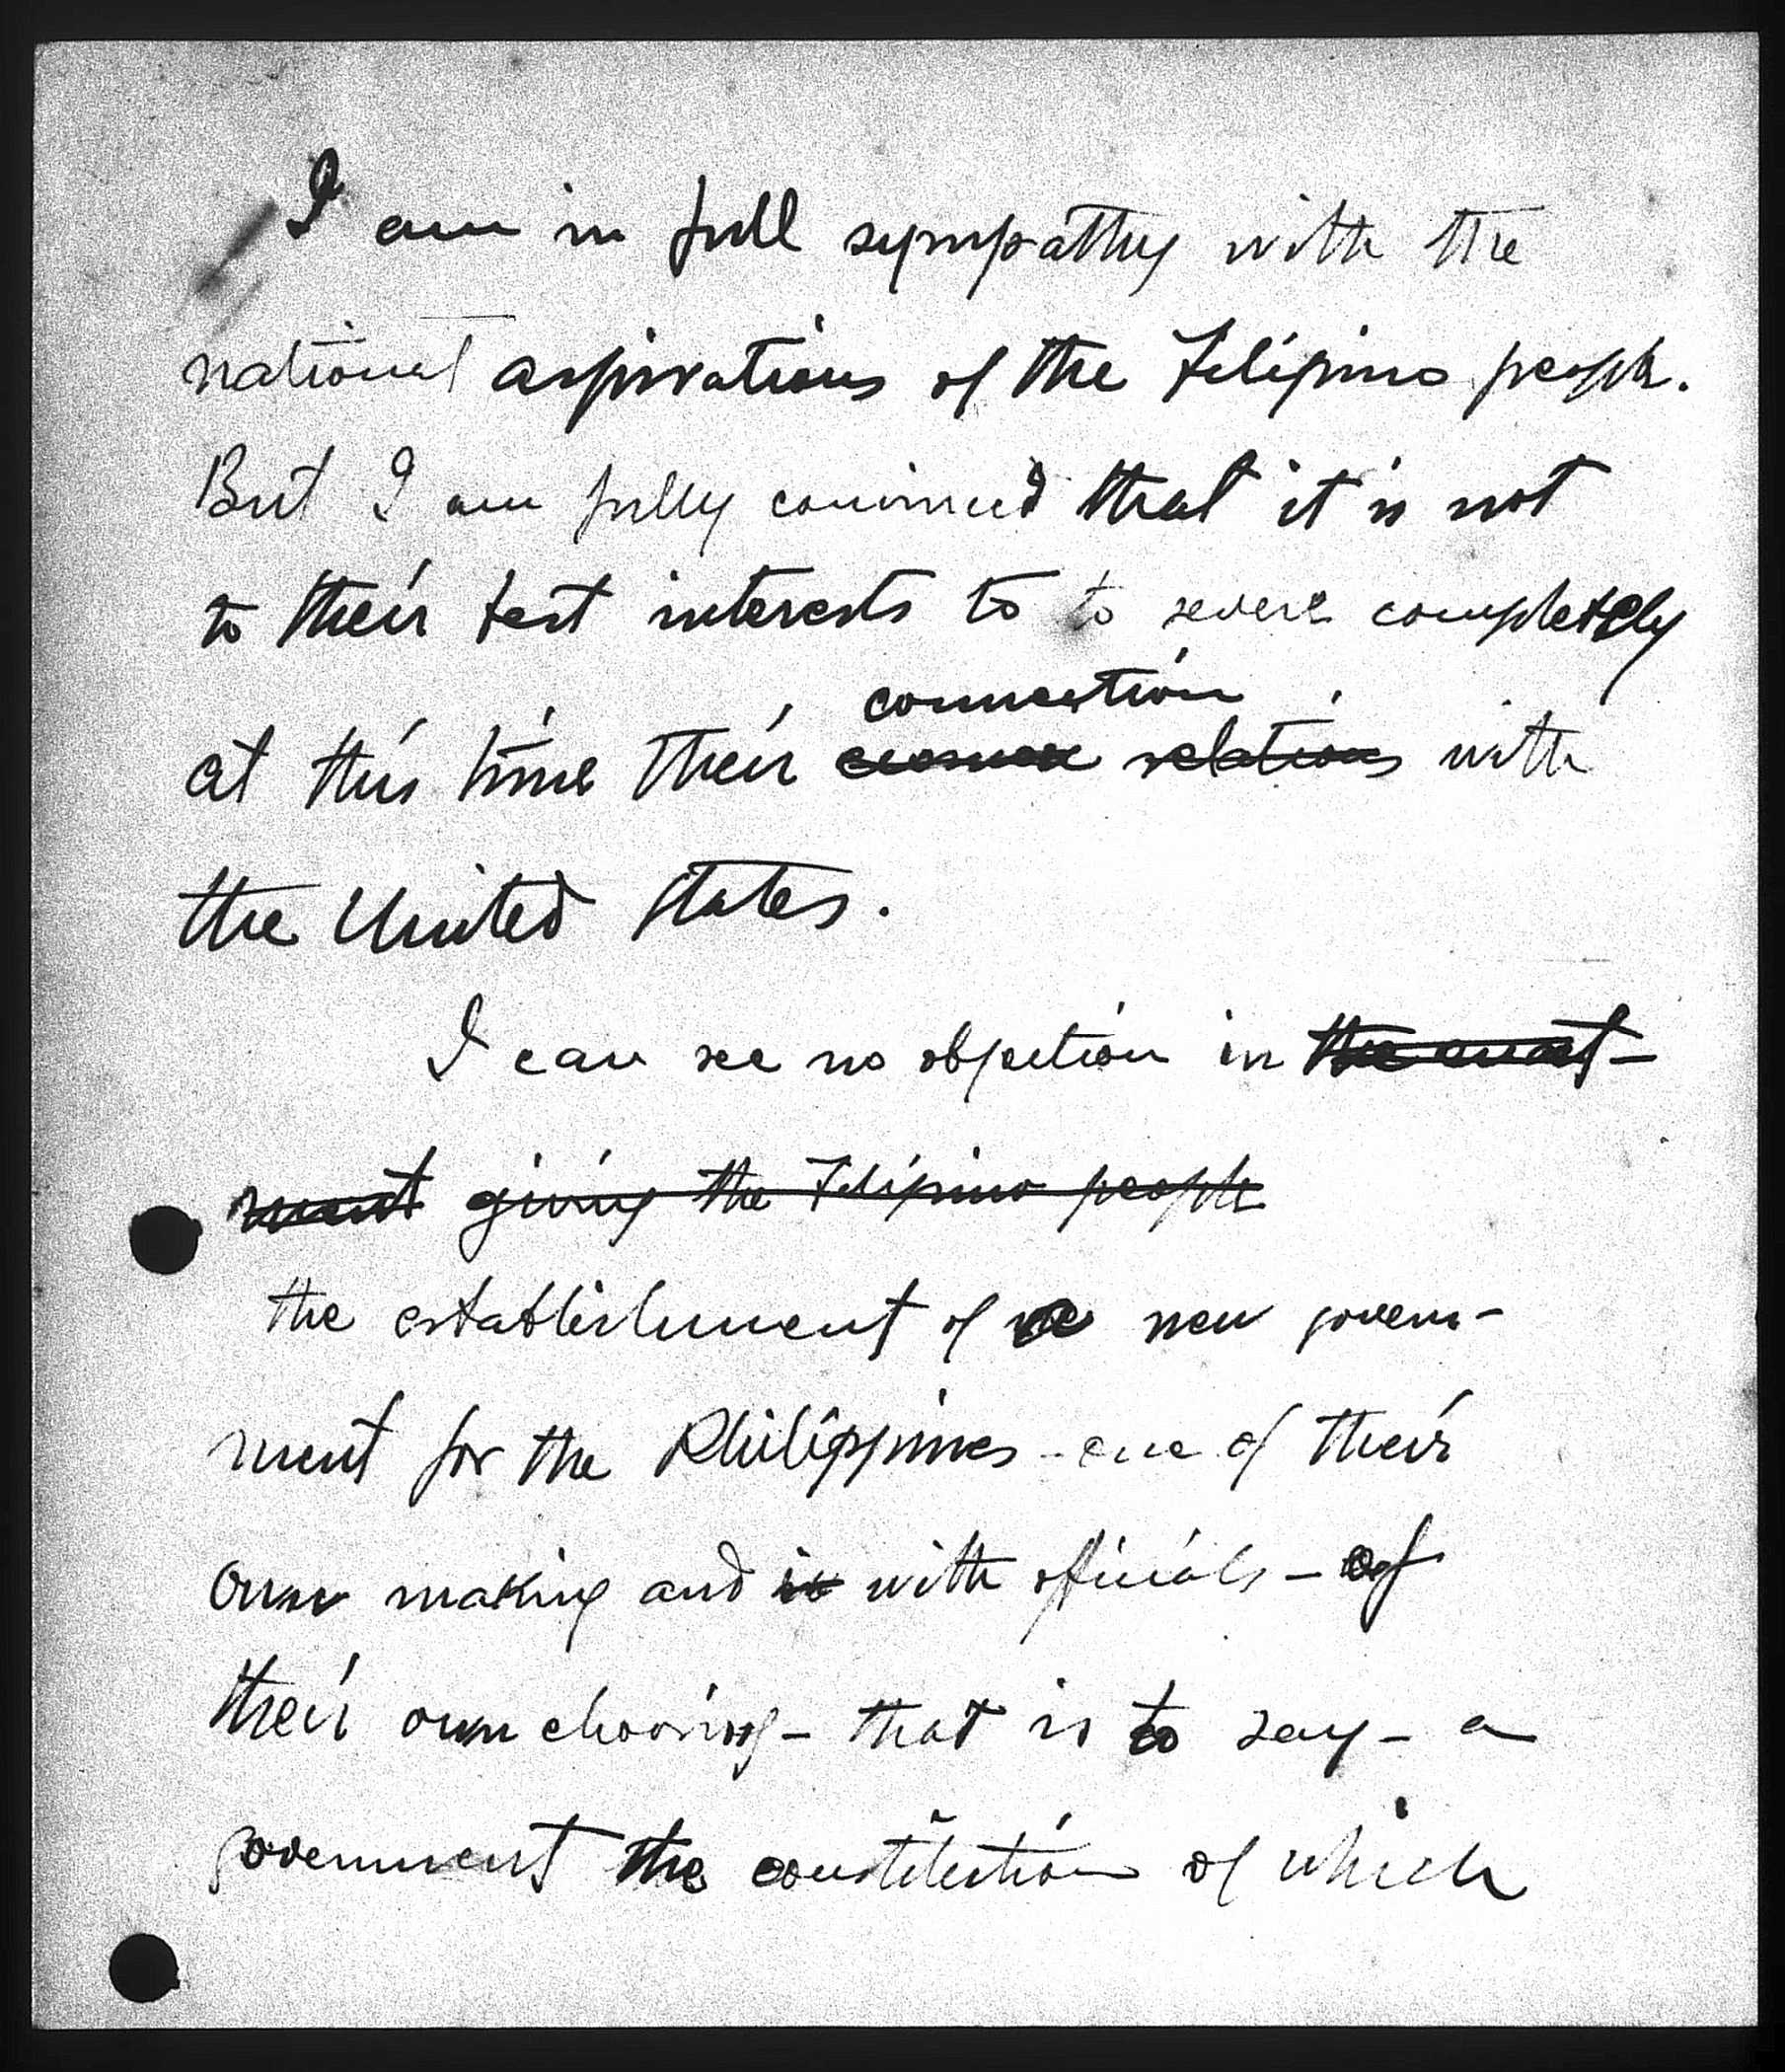 I am in full sympathy with the
national aspirations of the Filipino people.
But I am fully convinced that it is not
to their best interests to to severe completely
connection
at this time their relations with
the United States.
I can see no objection in the enact-
ment giving the Filipino people
the establishment of new govern-
ment for the Philippines - one of their
own making and in with officials - of
their own choosing - that is to say - a
government the constitution of which